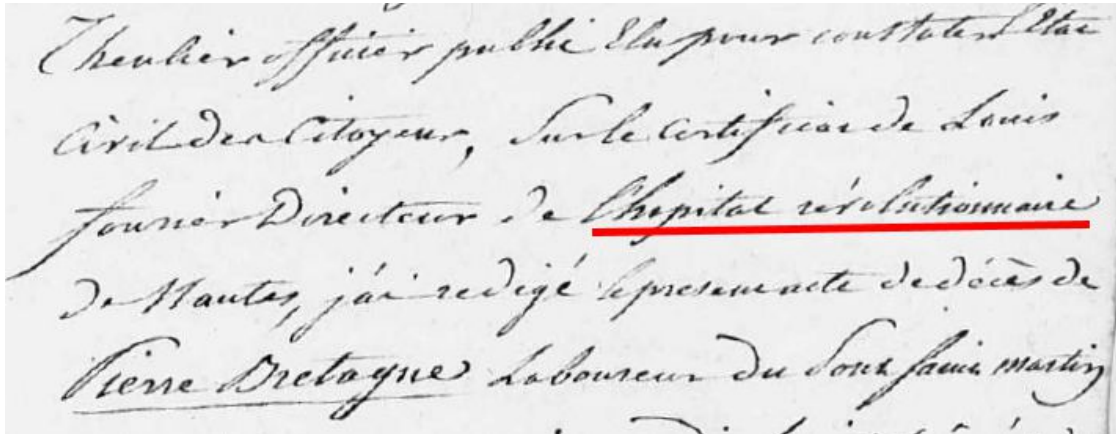 Theulier officier public Elu pour constater l'Etat
Civil des Citoyens, Sur le Certificat de Louis
fournier Directeur de l'hopital révolutionnaire
De Nantes, j'ai redigé le present acte de décès de
Pierre Bretagne Laboureur du Pont saint martin